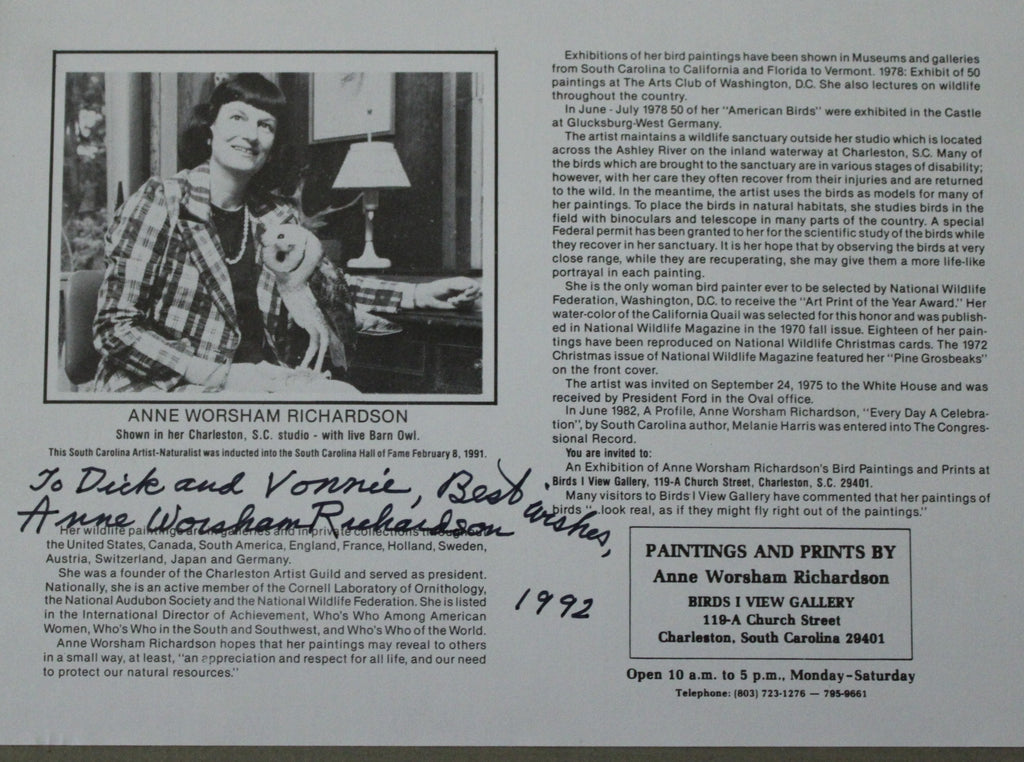 ANNE WORSHAM RICHARDSON
Shown in her Charleston, S.C. studio - with live Barn Owl.
This South Carolina Artist-Naturalist was inducted into the South Carolina Hall of Fame February 8, 1991.
To Dick and Vonnie, Best wishes,
Anne Worsham Richardson
1992
Her wildlife paintings are in galleries and in private collections throughout
the United States, Canada, South America, England, France, Holland, Sweden,
Austria, Switzerland, Japan and Germany.
She was a founder of the Charleston Artist Guild and served as president.
Nationally, she is an active member of the Cornell Laboratory of Ornithology,
the National Audubon Society and the National Wildlife Federation. She is listed
in the International Director of Achievement, Who's Who Among American
Women, Who's Who in the South and Southwest, and Who's Who of the World.
Anne Worsham Richardson hopes that her paintings may reveal to others
in a small way, at least, "an appreciation and respect for all life, and our need
to protect our natural resources."
Exhibitions of her bird paintings have been shown in Museums and galleries
from South Carolina to California and Florida to Vermont. 1978: Exhibit of 50
paintings at The Arts Club of Washington, D.C. She also lectures on wildlife
throughout the country.
In June - July 1978 50 of her "American Birds" were exhibited in the Castle
at Glucksburg-West Germany.
The artist maintains a wildlife sanctuary outside her studio which is located
across the Ashley River on the inland waterway at Charleston, S.C. Many of
the birds which are brought to the sanctuary are in various stages of disability;
however, with her care they often recover from their injuries and are returned
to the wild. In the meantime, the artist uses the birds as models for many of
her paintings. To place the birds in natural habitats, she studies birds in the
field with binoculars and telescope in many parts of the country. A special
Federal permit has been granted to her for the scientific study of the birds while
they recover in her sanctuary. It is her hope that by observing the birds at very
close range, while they are recuperating, she may give them a more life-like
portrayal in each painting.
She is the only woman bird painter ever to be selected by National Wildlife
Federation, Washington, D.C. to receive the "Art Print of the Year Award." Her
water-color of the California Quail was selected for this honor and was publish-
ed in National Wildlife Magazine in the 1970 fall issue. Eighteen of her pain-
tings have been reproduced on National Wildlife Christmas cards. The 1972
Christmas issue of National Wildlife Magazine featured her "Pine Grosbeaks"
on the front cover.
The artist was invited on September 24, 1975 to the White House and was
received by President Ford in the Oval office.
In June 1982, A Profile, Anne Worsham Richardson, "Every Day A Celebra-
tion", by South Carolina author, Melanie Harris was entered into The Congres-
sional Record.
You are invited to:
An Exhibition of Anne Worsham Richardson's Bird Paintings and Prints at
Birds I View Gallery, 119-A Church Street, Charleston, S.C. 29401.
Many visitors to Birds I View Gallery have commented that her paintings of
birds "..look real, as if they might fly right out of the paintings."
PAINTINGS AND PRINTS BY
Anne Worsham Richardson
BIRDS I VIEW GALLERY
119-A Church Street
Charleston, South Carolina 29401
Open 10 a.m. to 5 p.m., Monday-Saturday
Telephone: (803) 723-1276 — 795-9661